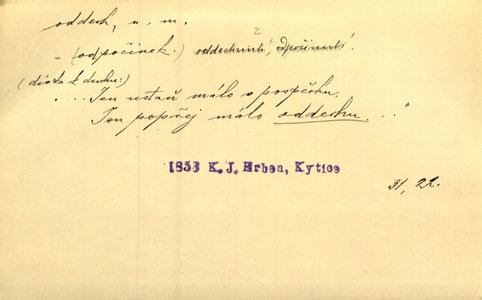 oddech, u, m.
2
" (odpočinek.) oddechnutí, odpočinutí.
(dívka k duchu:)
" ... Jen ustaň málo v pospěchu,
Jen popřej málo oddechu. .."
1853 K. J. Erben, Kytice
31, 22.